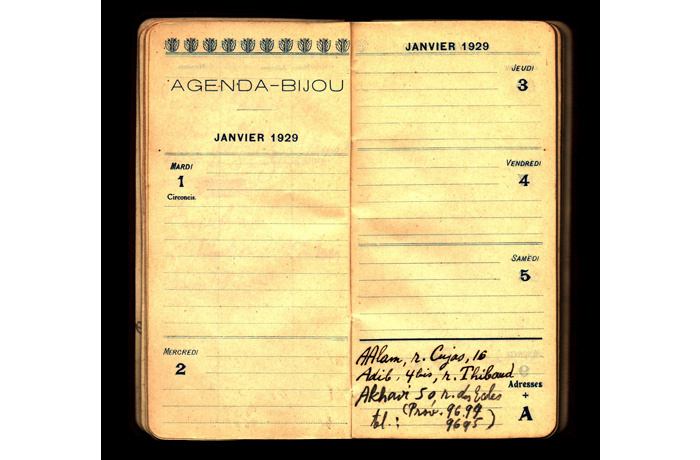 AGENDA-BIJOU
JANVIER 1929
MARDI
1
Circoncis.
MERCREDI
2
JANVIER 1929
JEUDI
3
VENDREDI
4
SAMEDI
5
AAlam, r. Cujas, 16
Adib, 4bis, r. Thibaud
Akhavi 50, r. des Ecoles
(Prov. 96.94
tel.: 9695)
Adresses
+
A